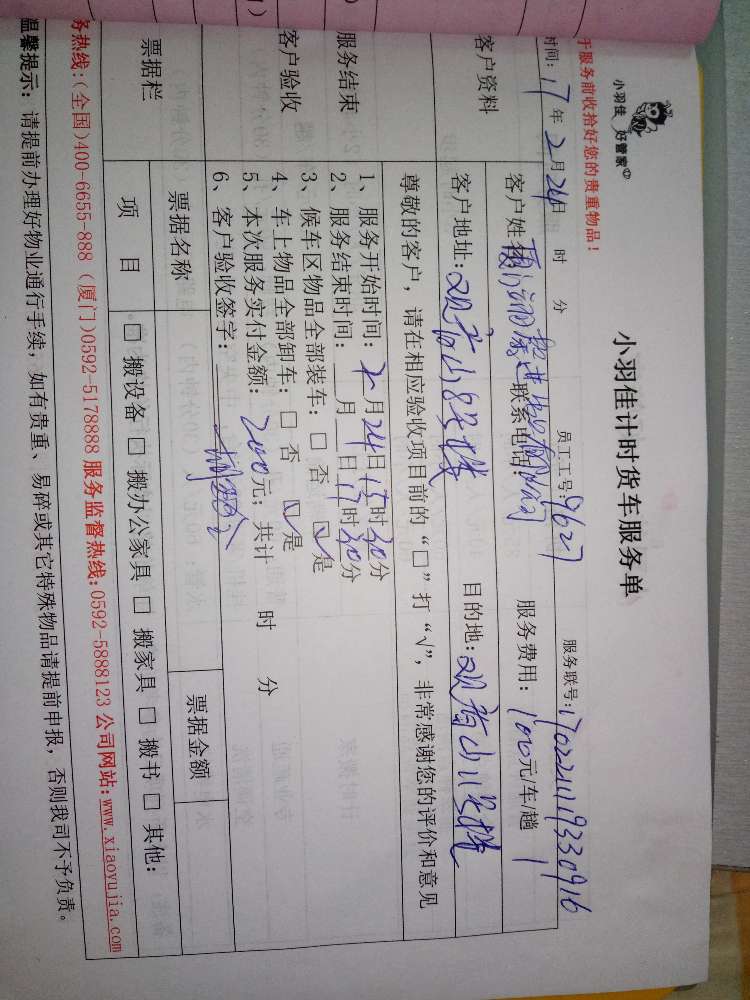 小羽佳 好管家
小羽佳计时货车服务单
于服务前收拾好您的贵重物品！
时间: 17年2月24日 时 分 员工工号: 9627 服务联号:
客户资料
客户姓名 联系电话: 服务费用: 100元/车/趟
客户地址: 观音山 目的地: 观音山
尊敬的客户，请在相应验收项目前的“□”打“√”，非常感谢您的评价和意见
服务结束
客户验收
1、服务开始时间: 2月24日15时30分
2、服务结束时间: 月 日17时30分
3、候车区物品全部装车: □ 否 ☑是
4、车上物品全部卸车: □ 否 ☑是
5、本次服务实付金额: 200元; 共计 时 分
6、客户验收签字:
票据栏
票据名称 票据金额
项 目 □ 搬设备 □ 搬办公家具 □ 搬家具 □ 搬书 □ 其他:
务热线:(全国)400-6655-888 (厦门)0592-5178888 服务监督热线:0592-5888123 公司网站:www.xiaoyujia.com
温馨提示: 请提前办理好物业通行手续，如有贵重、易碎或其它特殊物品请提前申报，否则我司不予负责。